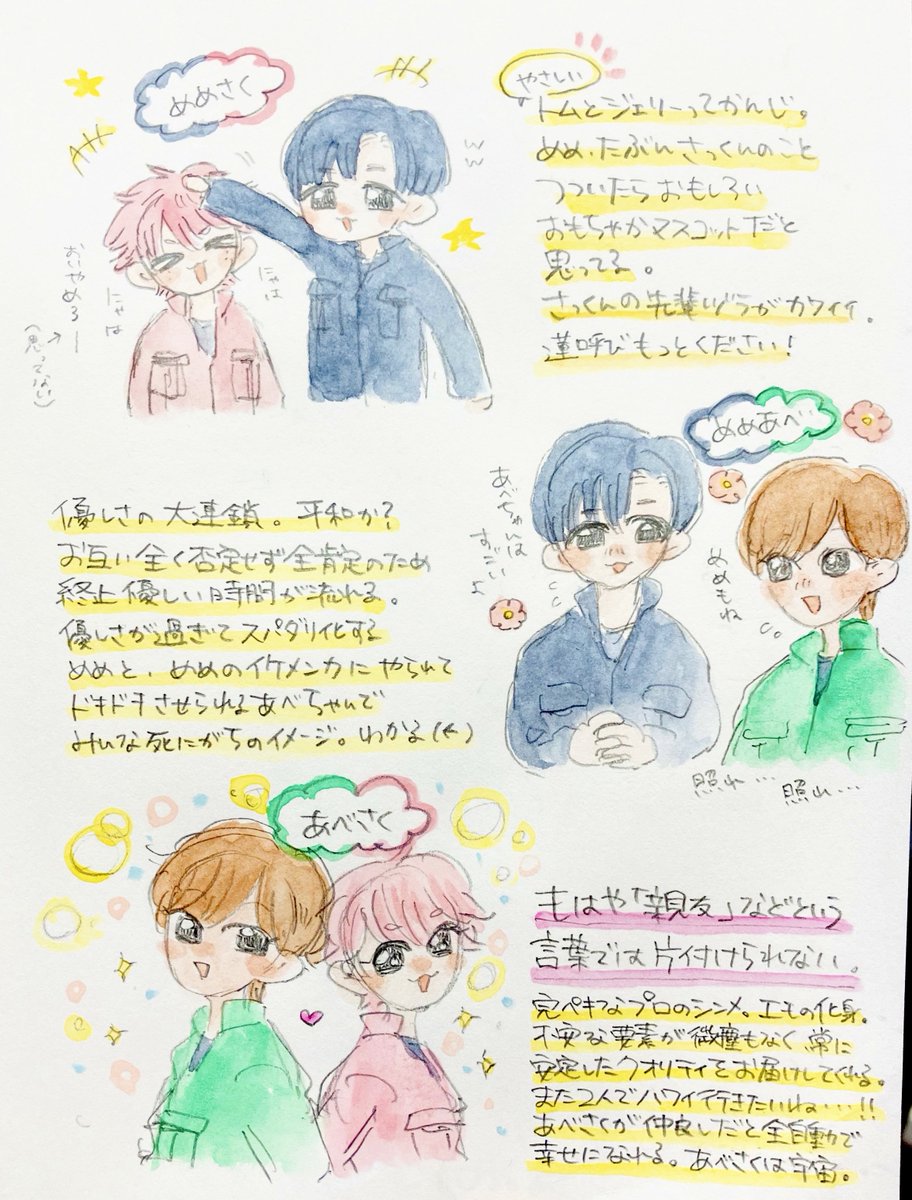 めめさく
やさしい
トムとジェリーってかんじ。
めめ、たぶんさっくんのこと
つついたらおもしろい
おもちゃかマスコットだと
思ってる。
さっくんの先輩ヅラがカワイイ。
蓮呼びもっとください!
ww
おいやめろー
(思ってない)
にゃは
にゃは
めめあべ
あべちゃんは
すごいよ
めめもね
照れ…
照れ…
優しさの大連鎖。平和か?
お互い全く否定せず全肯定のため
終止優しい時間が流れる。
優しさが過ぎてスパダリ化する
めめと、めめのイケメンカにやられて
ドキドキさせられるあべちゃんで
みんな死にがちのイメージ。わかる(←)
あべさく
もはや「親友」などという
言葉では片付けられない。
完ペキなプロのシンメ。エモの化身。
不安な要素が微塵もなく常に
安定したクオリティをお届けしてくれる。
また2人でハワイ行きたいね…!!
あべさくが仲良しだと全自動で
幸せになれる。あべさくは宇宙。